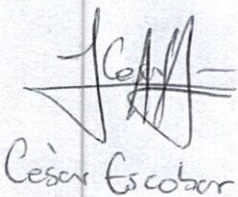 Cesàr Escobar